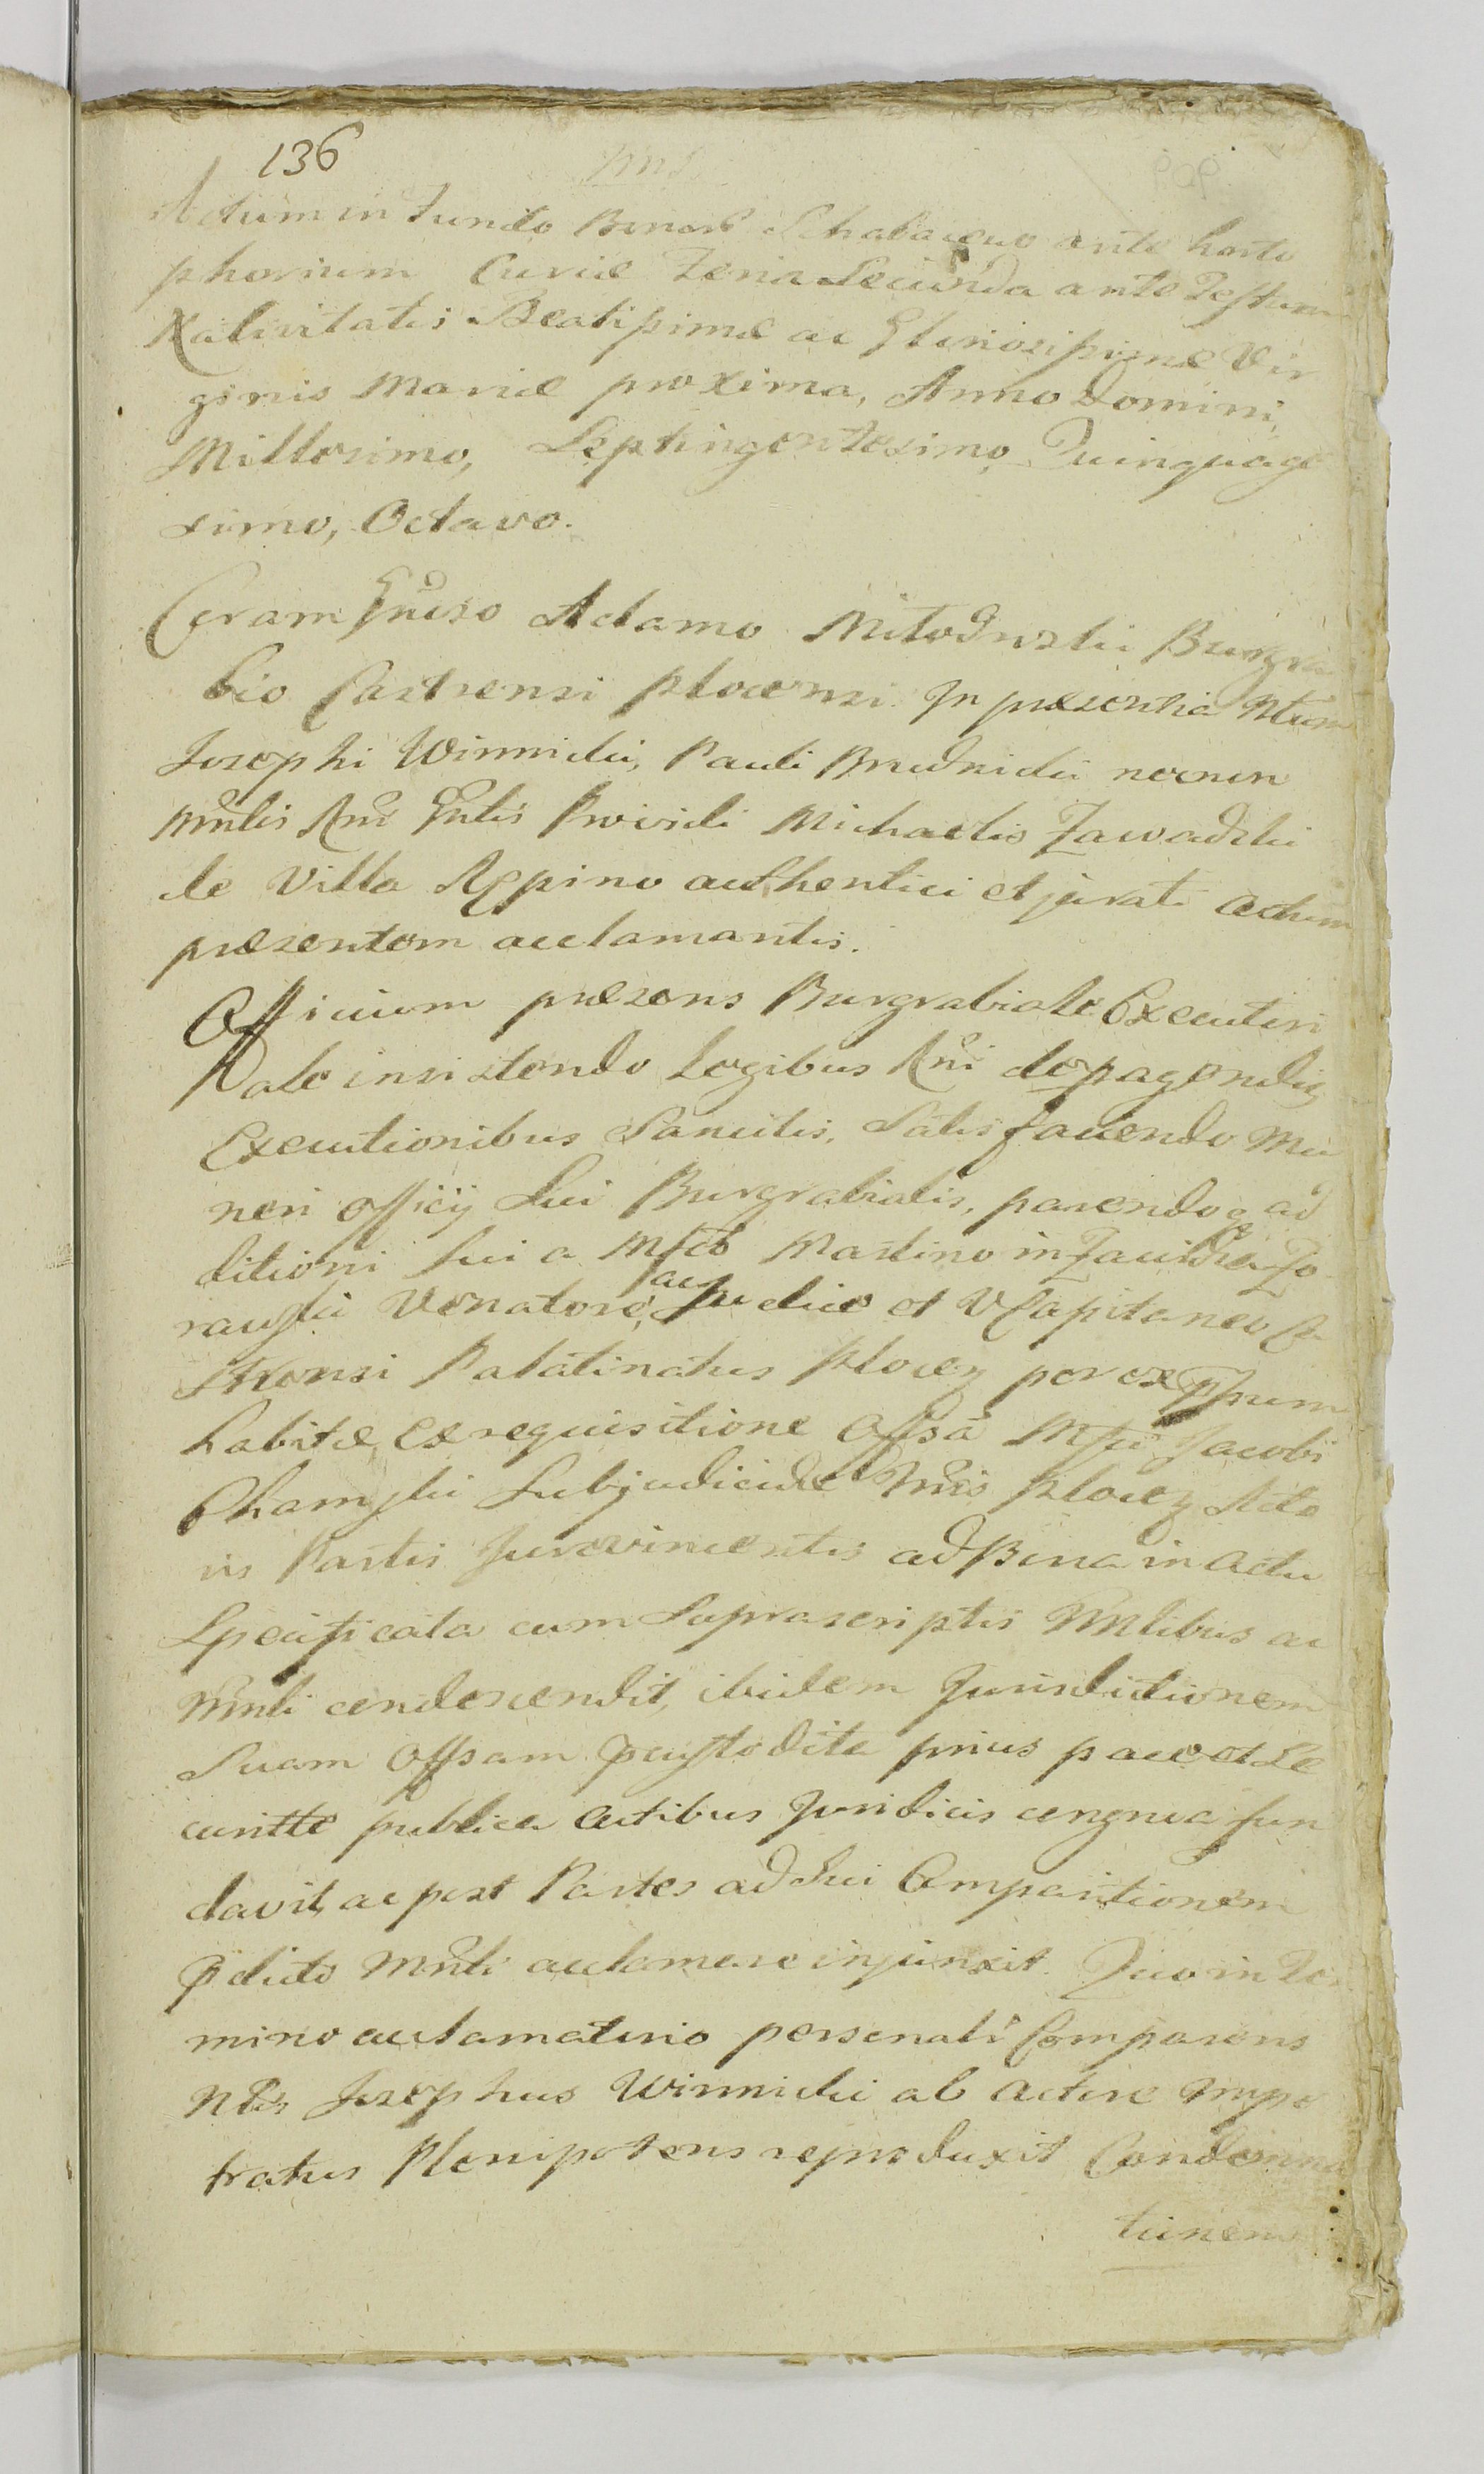 136
Actum in Fundo Bonor̃ ante horto
phorium Curiæ Feria Secunda ante Festum
Nativitatis Beatissimæ ac Gloriosissimæ Vir
ginis Mariæ proxima, Anno Domini,
Millesimo, Septingentesimo Quinquage
simo, Octavo.
Coram Gñoso Adamo Burgra
bio Castrensi Plocensi. In præsentia Nlium
Josephi Winnicki, Pauli Brudnicki necnon
Mñlis Rñi Gñlis Providi Michaelis Zawadzki
de Villa Rempino authentici et jurati actum
præsentem acclamantis.
Officium præsens Burgrabiale Executori
ale insistendo Legibus Rñi de peragendis
Executionibus Sancitis, Satisfaciendo Mu
neri Officÿ Sui Burgrabialis, parendoq̃ ad
ditioni sui a Mfco Martino in
Venatore, ac Judice et VCapitaneo Ca
strensi Palatinatus Plocen per expssum
habitæ, ex requisitione Offsa Mfci Jacobi
Subjudicidæ Plocen Acto
ris Partis Jurevincentis ad Bona in actu
Specificata cum Suprascriptis Nñlibus ac
Mñli condescendit, ibidem Jurisdictionem
Suam Offsam pcustodita prius pace et Se
curitte publica actibus Juridicis congrua fun
davit, ac post Partes ad Sui Comparitionem
pdicto Mñli acclamare injunxit. Quo in Ter
mino acclamatorio personali Comparens
Nlis Josephus Winnicki ab Actore Impe
tratus Plenipotens reproduxit Condemna
tionem